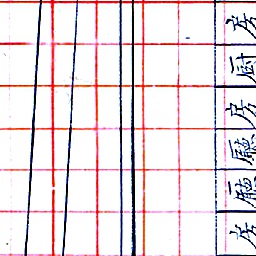 房
厨
房
廳
廳
房